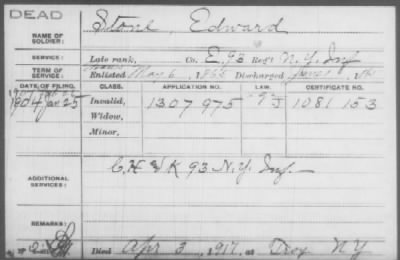 DEAD
NAME OF SOLDIER: Stone, Edward
SERVICE: Late rank, Co. E, 93 Reg't N.Y. Inf
TERM OF SERVICE: Enlisted May 6, 1864 Discharged June 1, 186
DATE OF FILING. CLASS. APPLICATION NO. LAW. CERTIFICATE NO.
1904 Jan 25 Invalid, 1307975 J 1081153
Widow,
Minor,
ADDITIONAL SERVICES: C. H & K 93 N.Y. Inf.
REMARKS:
Died Apr 3, 1917, at Troy NY